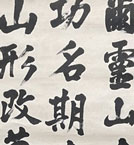 幽靈山
功名期
山形改